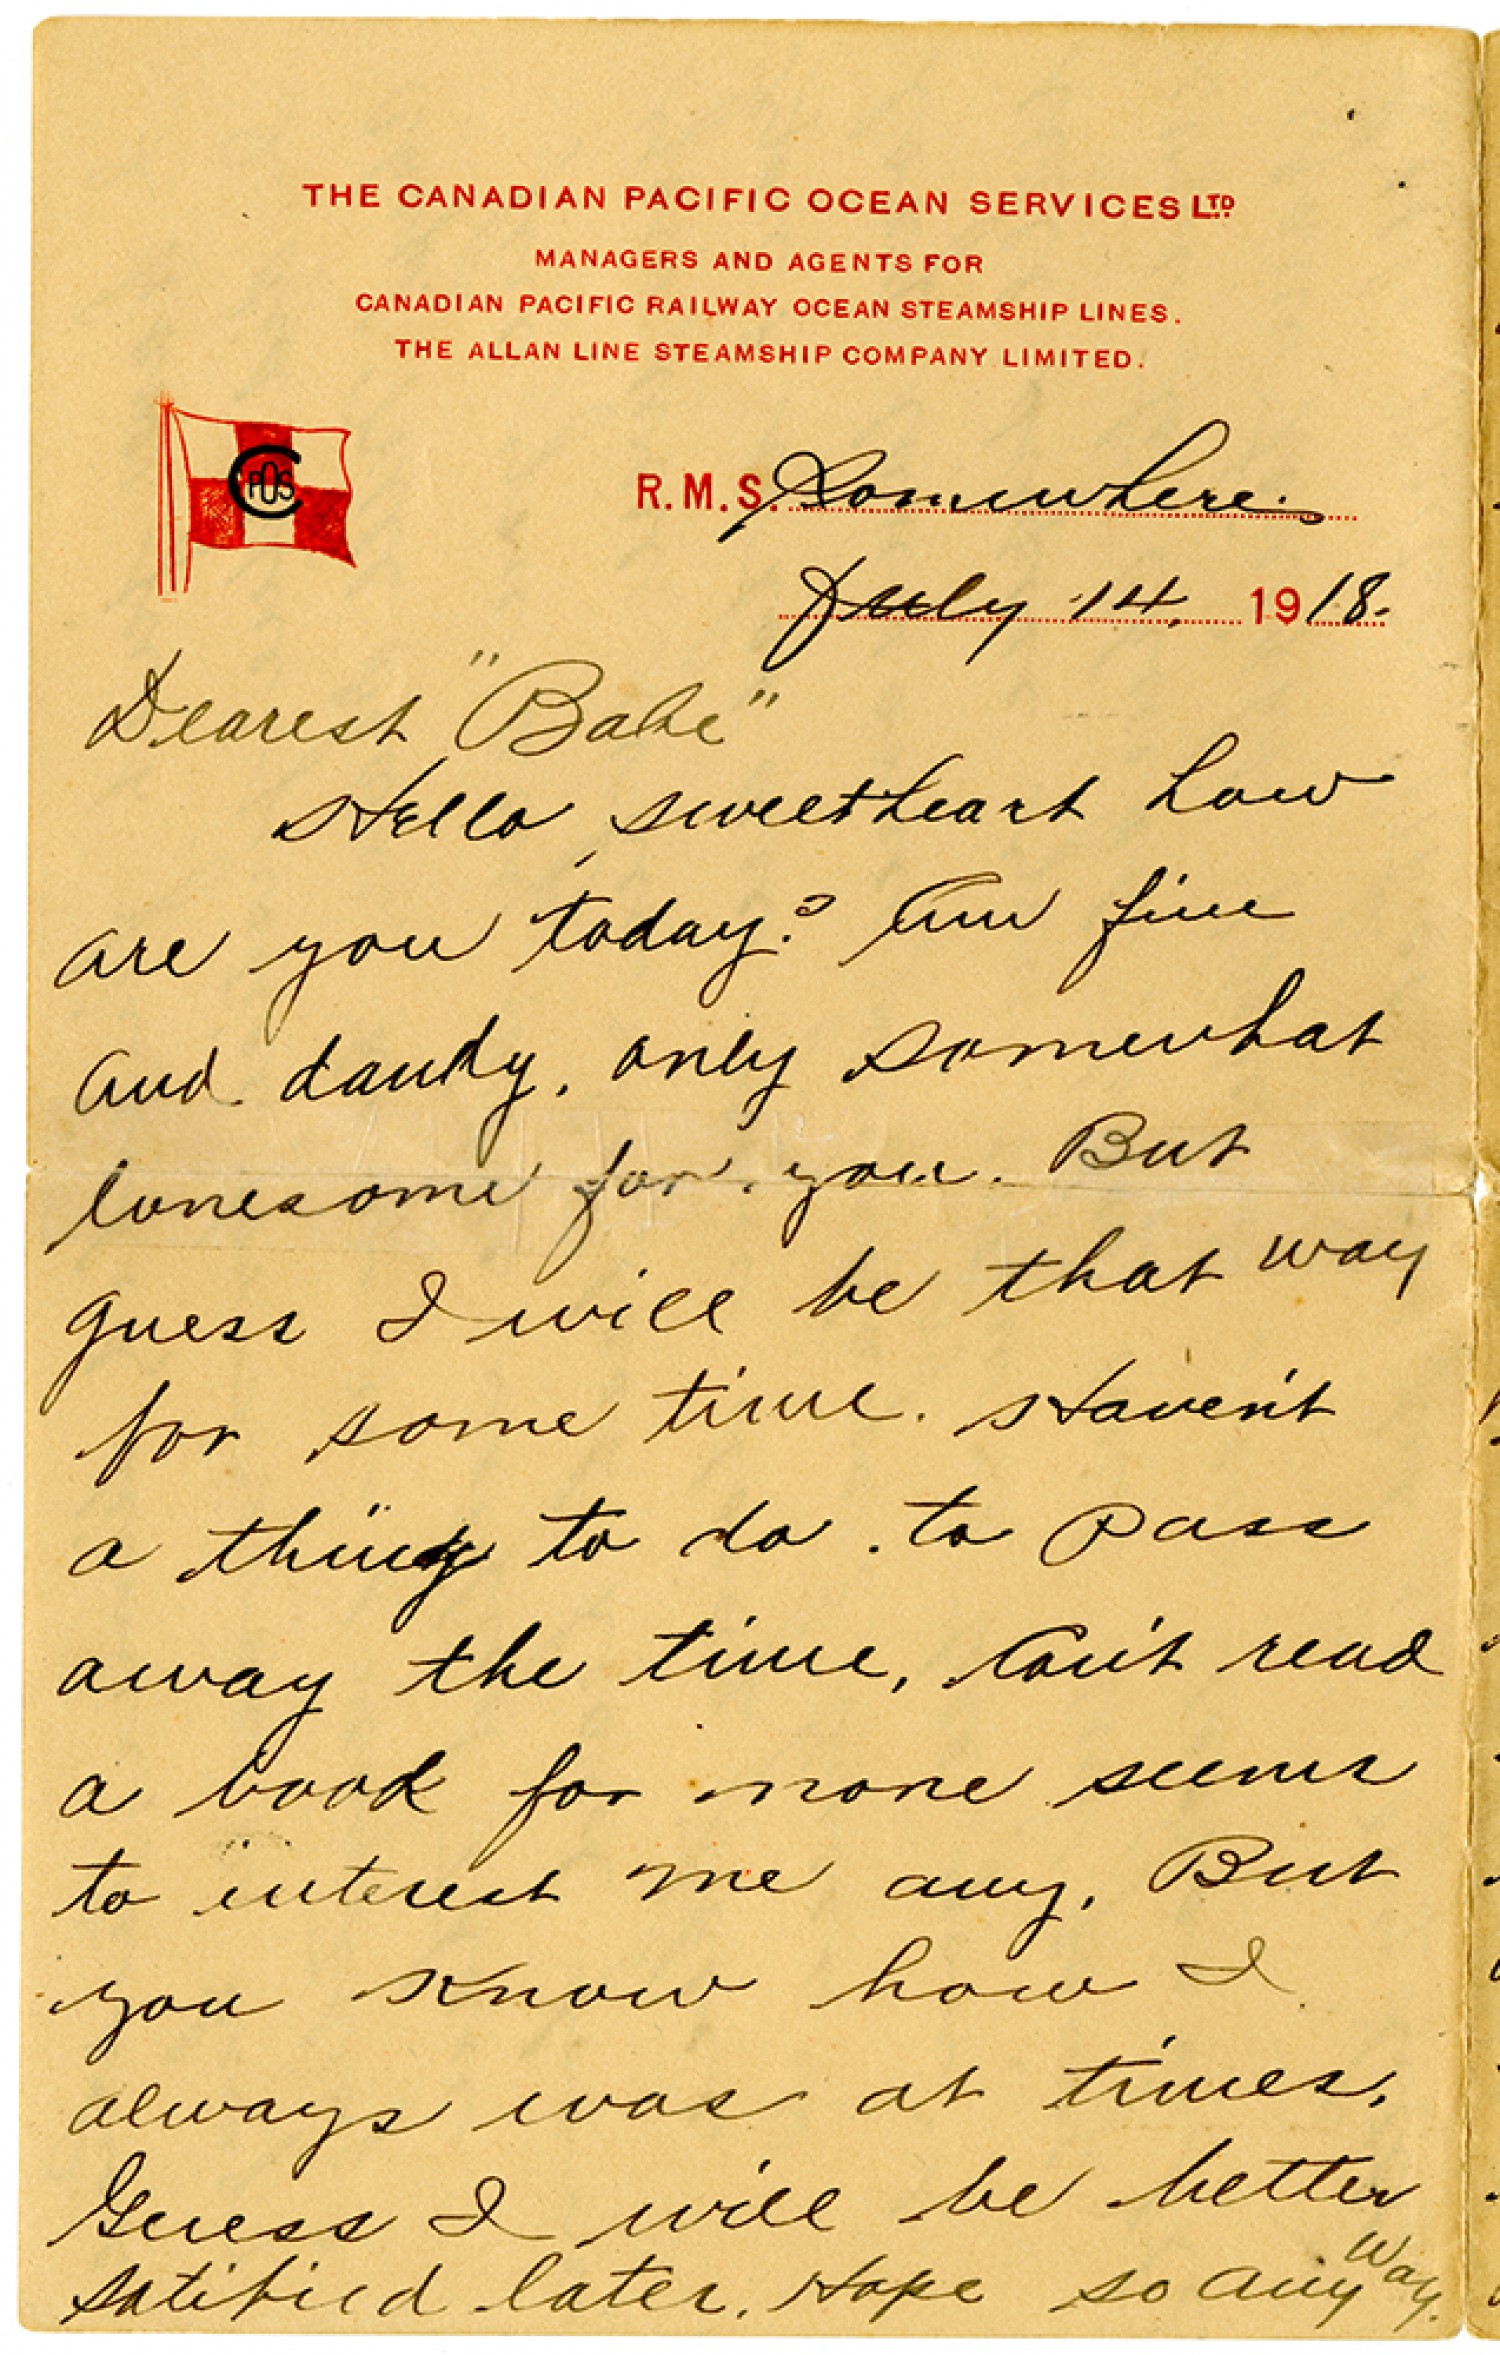 THE CANADIAN PACIFIC OCEAN SERVICES LTD
MANAGERS AND AGENTS FOR
CANADIAN PACIFIC RAILWAY OCEAN STEAMSHIP LINES.
THE ALLAN LINE STEAMSHIP COMPANY LIMITED.
CPOS
R.M.S. Somewhere.
July 14, 1918.
Dearest "Babe"
Hello, sweetheart how
are you today? Am fine
and dandy, only somewhat
lonesome for you. But
guess I will be that way
for some time. Haven't
a thing to do. to pass
away the time, Can't read
a book for none seems
to interest me any. But
you know how I
always was at times.
Guess I will be better
satified later. Hope so any way.